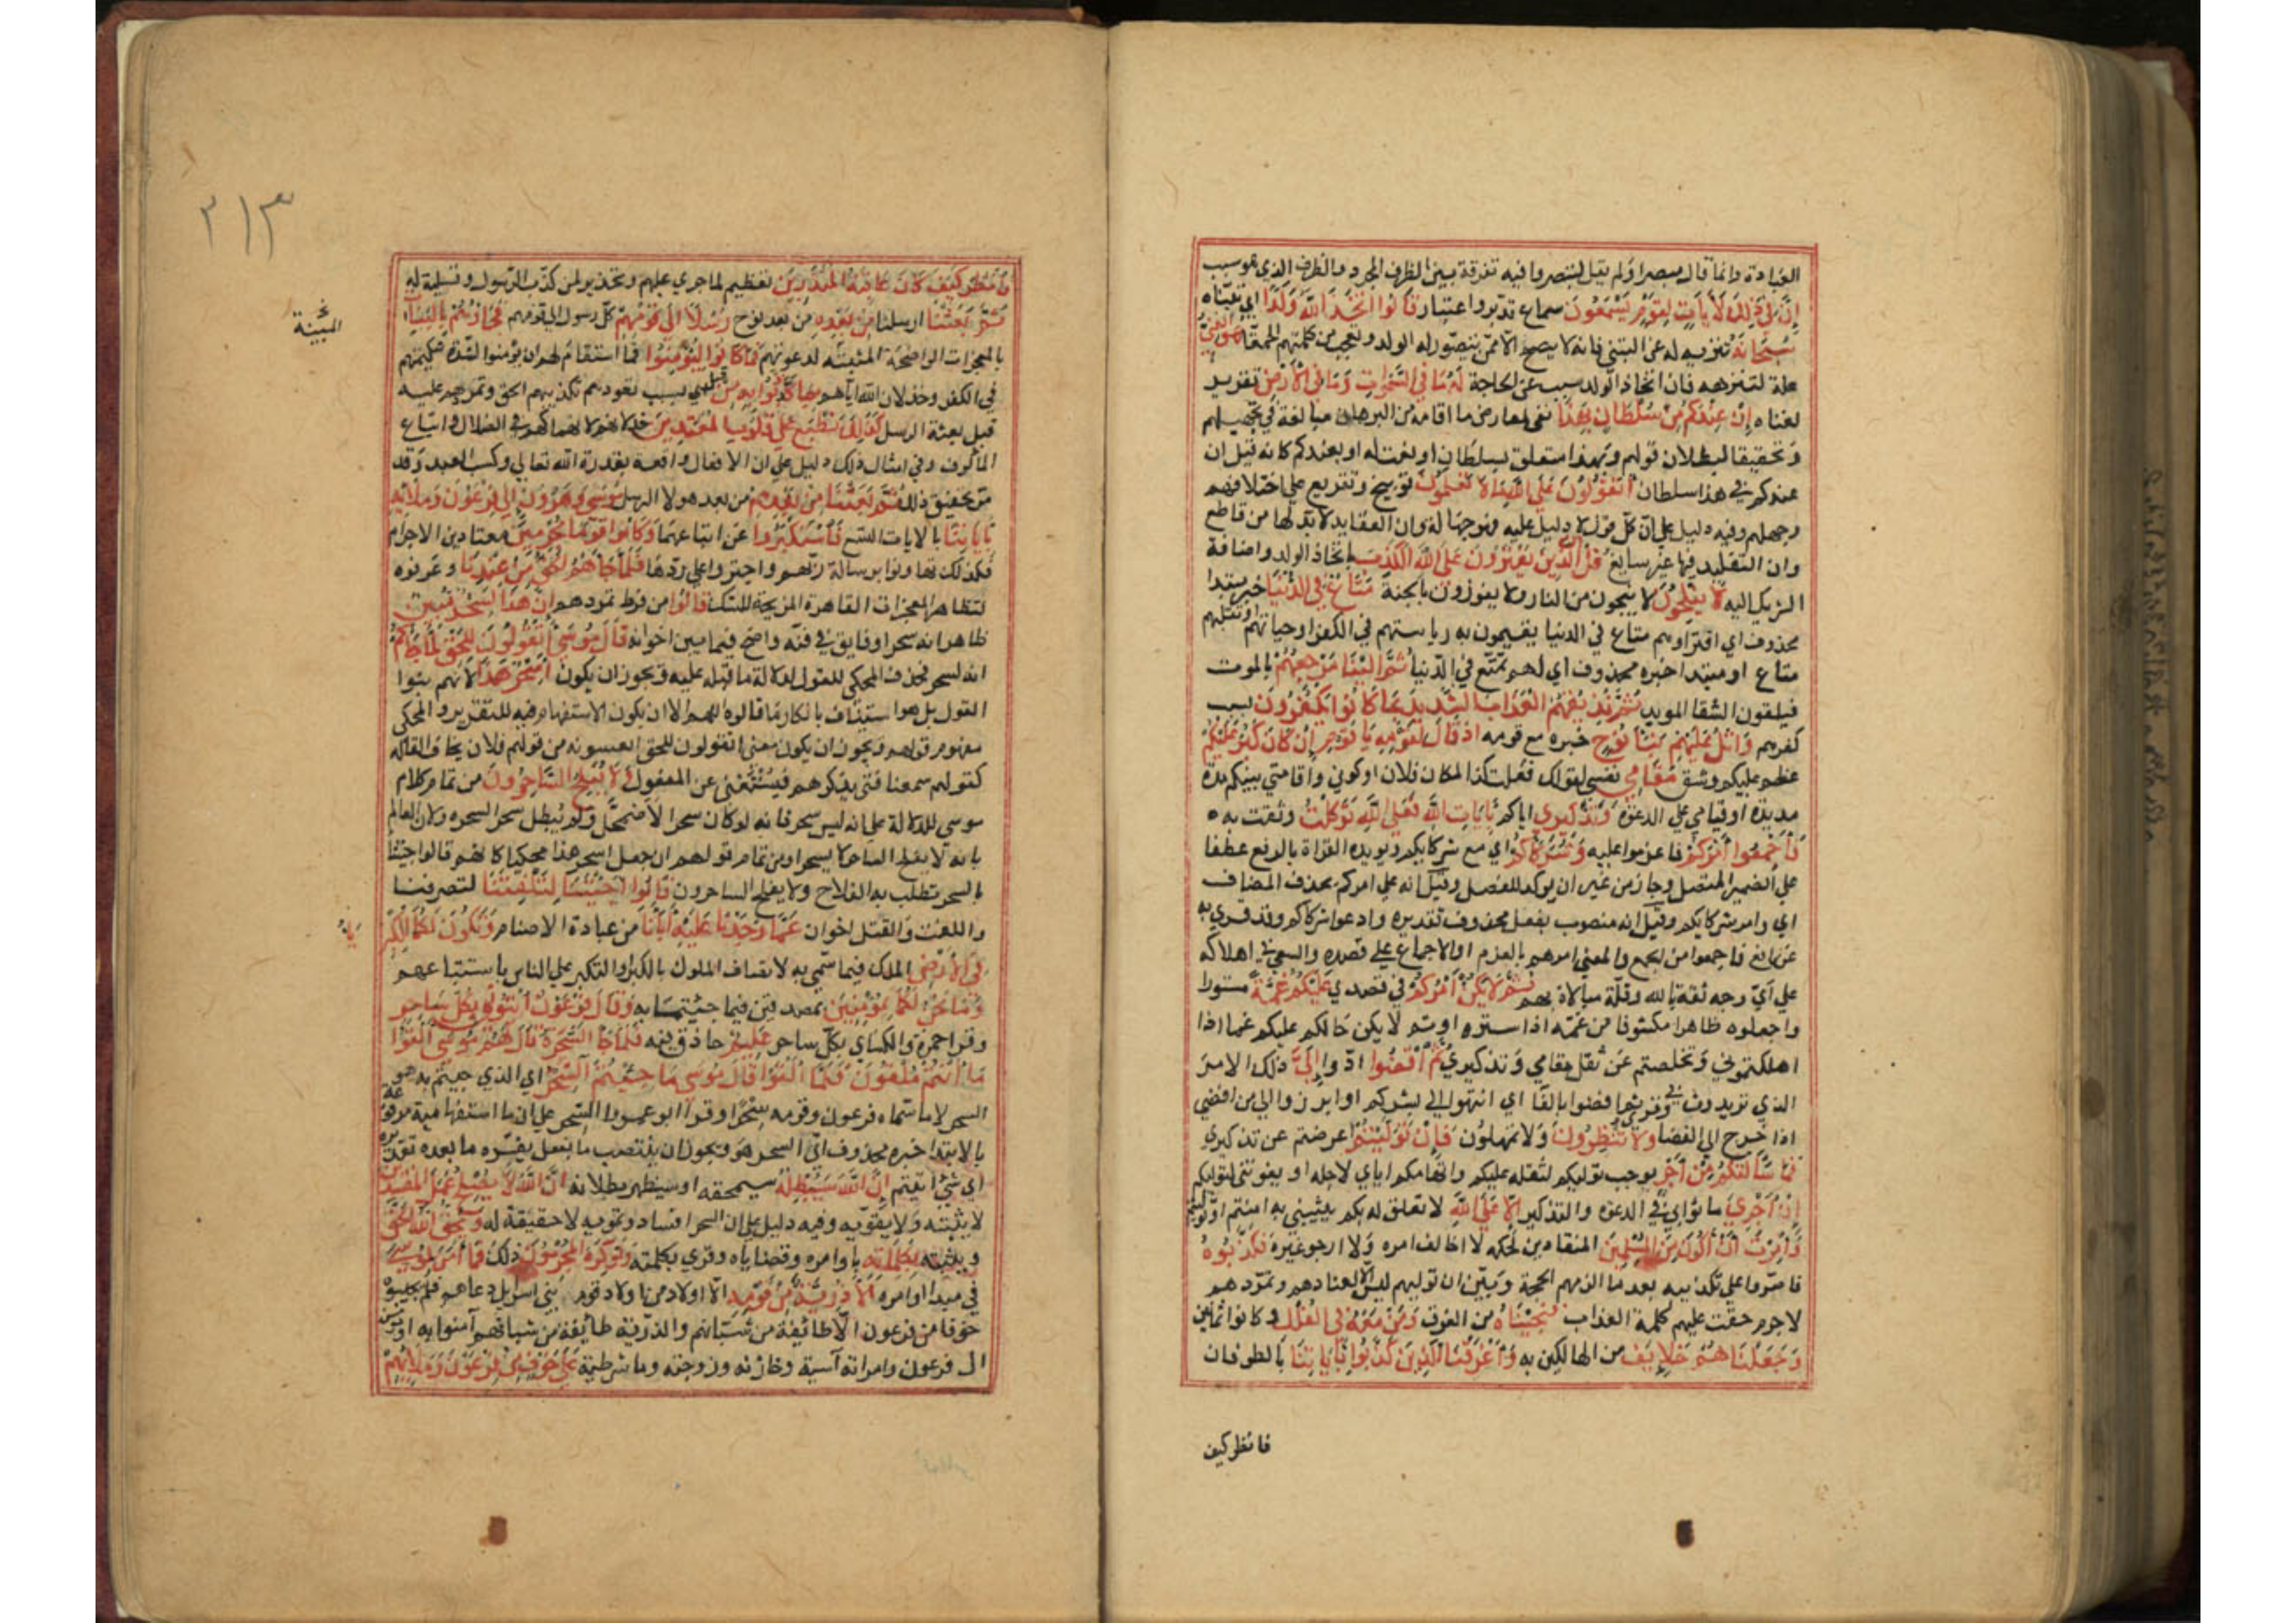 العبادة وانما قال مبصرا ولم يقل لتبصروا فيه تفرقة بين الظرف المجرد والظرف الذي هو سبب
إن في ذلك لآيات لقوم يسمعون سماع تدبر واعتبار قالوا اتخذ الله ولدا اي تبناه
سبحانه تنزيه له عن التبني فانه لا يصح الا ممن يتصور له الولد وتعجب من كلمتهم الحمقا هو الغني
علة لتنزهه فان اتخاذ الولد سبب عن الحاجة له ما في السموات وما في الأرض تقرير
لغناه إن عندكم من سلطان بهذا نفي لمعارض ما اقامه من البرهان مبالغة في تجهيلهم
وتحقيقا لبطلان قولهم وبهذا متعلق بسلطان او نعت له او بعندكم كانه قيل ان
عندكم في هذا سلطان أتقولون على الله ما لا تعلمون توبيخ وتقريع علي اختلافهم
وجهلهم وفيه دليل علي ان كل قول لا دليل عليه فهو جهالة وان العقايد لا بد لها من قاطع
وان التقليد فيها غير سايغ قل إن الذين يفترون على الله الكذب باتخاذ الولد واضافة
الشريك اليه لا يفلحون لا ينجون من النار ولا يفوزون بالجنة متاع في الدنيا خبر مبتدا
محذوف اي افتراوهم متاع في الدنيا يقيمون به رياستهم في الكفر او حياتهم او تقلبهم
متاع او مبتدا خبره محذوف اي لهم تمتع في الدنيا ثم إلينا مرجعهم بالموت
فيلقون الشقا الموبد ثم نذيقهم العذاب الشديد بما كانوا يكفرون بسبب
كفرهم واتل عليهم نبأ نوح خبره مع قومه اذ قال لقومه يا قوم إن كان كبر عليكم
عظم عليكم وشق مقامي نفسي لقولك فعلت كذا لمكان فلان او كوني واقامتي بينكم مدة
مديدة او قيامي علي الدعوة وتذكيري اياكم بآيات الله فعلى الله توكلت وثقت به
فأجمعوا أمركم فاعزموا عليه وشركاءكم اي مع شركايكم ويويده القراة بالرفع عطفا
علي الضمير المتصل وجاز من غير ان يوكد للفصل وقيل انه علي امركم بحذف المضاف
اي وامر شركايكم وقيل انه منصوب بفعل محذوف تقديره وادعوا شركاكم وقد قري به
عن نافع فاجمعوا من الجمع والمعني امرهم بالعزم او الاجماع علي قصده والسعي في اهلاكه
علي اي وجه ثقة بالله وقلة مبالاة بهم ثم لا يكن أمركم في قصدي عليكم غمة مستورا
واجعلوه ظاهرا مكشوفا من غمه اذا ستره او ثم لا يكن حالكم عليكم غما اذا
اهلكتموني وتخلصتم عن ثقل مقامي وتذكيري ثم اقضوا ادوا إلي ذلك الامر
الذي تريدون في وقري ثم افضوا بالفا اي انتهوا الي بشركم او ابرزوا الي من افضي
اذا خرج الي الفضا ولا تنظرون ولا تمهلون فإن توليتم اعرضتم عن تذكيري
فما سألتكم من أجر يوجب توليكم لثقله عليكم واتهامكم اياي لاجله او يفوتني لتوليكم
إن أجري ما ثوابي في الدعوة والتذكير إلا على الله لا تعلق له بكم يثيبني به امنتم او توليتم
وأمرت أن أكون من المسلمين المنقادين لحكمه لا اخالف امره ولا ارجو غيره فكذبوه
فاصروا علي تكذيبه بعد ما الزمهم الحجة وبين ان توليهم ليس الا لعنادهم وتمردهم
لا جرم حقت عليهم كلمة العذاب فنجيناه من الغرق ومن معه في الفلك وكانوا ثمانين
وجعلناهم خلايف من الهالكين به وأغرقنا الذين كذبوا بآياتنا بالطوفان
فانظر كيف
٢١٣
فانظر كيف كان عاقبة المنذرين تعظيم لما جري عليهم وتحذير لمن كذب الرسول وتسلية له
ثم بعثنا ارسلنا من بعده من بعد نوح رسلا الى قومهم كل رسول الي قومهم فجاؤهم بالبينات
بالمعجزات الواضحة المثبتة لدعوتهم فما كانوا ليؤمنوا فما استقام لهم ان يؤمنوا لشدة شكيمتهم
المبينة
في الكفر وخذلان الله اياهم بما كذبوا به من قبل اي بسبب تعودهم تكذيب الحق وتمرنهم عليه
قبل بعثة الرسل كذلك نطبع على قلوب المعتدين بخذلانهم لانهماكهم في الضلال واتباع
المألوف وفي امثال ذلك دليل علي ان الافعال واقعة بقدرة الله تعالي وكسب العبد وقد
مر تحقيق ذلك ثم بعثنا من بعدهم من بعد هولا الرسل موسى وهرون إلى فرعون وملائه
بآياتنا بالايات التسع فاستكبروا عن اتباعهما وكانوا قوما مجرمين معتادين الاجرام
فلذلك تهاونوا برسالة ربهم واجتروا علي ردها فلما جاءهم الحق من عندنا وعرفوه
لتظاهر المعجزات القاهرة المزيحة للشك قالوا من فرط تمردهم إن هذا لسحر مبين
ظاهر انه سحر او فايق في فنه واضح فيما بين اخوانه قال موسى أتقولون للحق لما جاءكم
انه لسحر فحذف المحكي للقول لدلالة ما قبله عليه ويجوز ان يكون أسحر هذا لانهم بتوا
القول بل هو استيناف بانكار ما قالوه اللهم الا ان يكون الاستفهام فيه للتقرير والمحكي
مفهوم قولهم ويجوز ان يكون معني اتقولون للحق اتعيبونه من قولهم فلان يخاف القالة
كقولهم سمعنا فتي يذكرهم فيستغني عن المفعول ولا يفلح الساحرون من تمام كلام
موسي للدلالة علي انه ليس بسحر فانه لو كان سحرا لاضمحل ولم يبطل سحر السحره ولان العالم
بانه لا يفلح الساحر لا يسحر او من تمام قولهم ان جعل اسحر هذا محكيا كانهم قالوا اجئتنا
بالسحر تطلب به الفلاح ولا يفلح الساحرون قالوا أجئتنا لتلفتنا لتصرفنا
واللفت والفتل اخوان عما وجدنا عليه آباءنا من عبادة الاصنام وتكون لكما الكبرياء
في الأرض الملك فيها سمي به لاتصاف الملوك بالكبر او التكبر علي الناس باستتباعهم
وما نحن لكما بمؤمنين بمصدقين فيما جئتما به وقال فرعون ائتوني بكل ساحر
وقرا حمزة والكساي بكل سحار عليم حاذق فيه فلما جاء السحرة قال لهم موسى ألقوا
ما أنتم ملقون فلما ألقوا قال موسى ما جئتم به السحر اي الذي جيتم به هو
السحر لا ما سماه فرعون وقومه سحرا وقرا ابو عمرو السحر علي ان ما استفهامية مرفوعة
بالابتدا خبره محذوف اي السحر هو ويجوز ان ينتصب ما بفعل يفسره ما بعده تقديره
اي شئ اتيتم إن الله سيبطله سيمحقه او سيظهر بطلانه ان الله لا يصلح عمل المفسدين
لا يثبته ولا يقويه وفيه دليل علي ان السحر افساد وتمويه لا حقيقة له ويحق الله الحق
ويثبته بكلماته باوامره وقضاياه وقري بكلمته ولو كره المجرمون ذلك فما آمن لموسى
في مبدا امره إلا ذرية من قومه الا اولاد من اولاد قومه بني اسرايل دعاهم فلم يجيبوه
خوفا من فرعون الا طائفة من شبانهم والذرية طائفة من شبانهم آمنوا به او مومن
ال فرعون وامراته آسية وخازنه وزوجته وماشطته على خوف من فرعون وملائهم